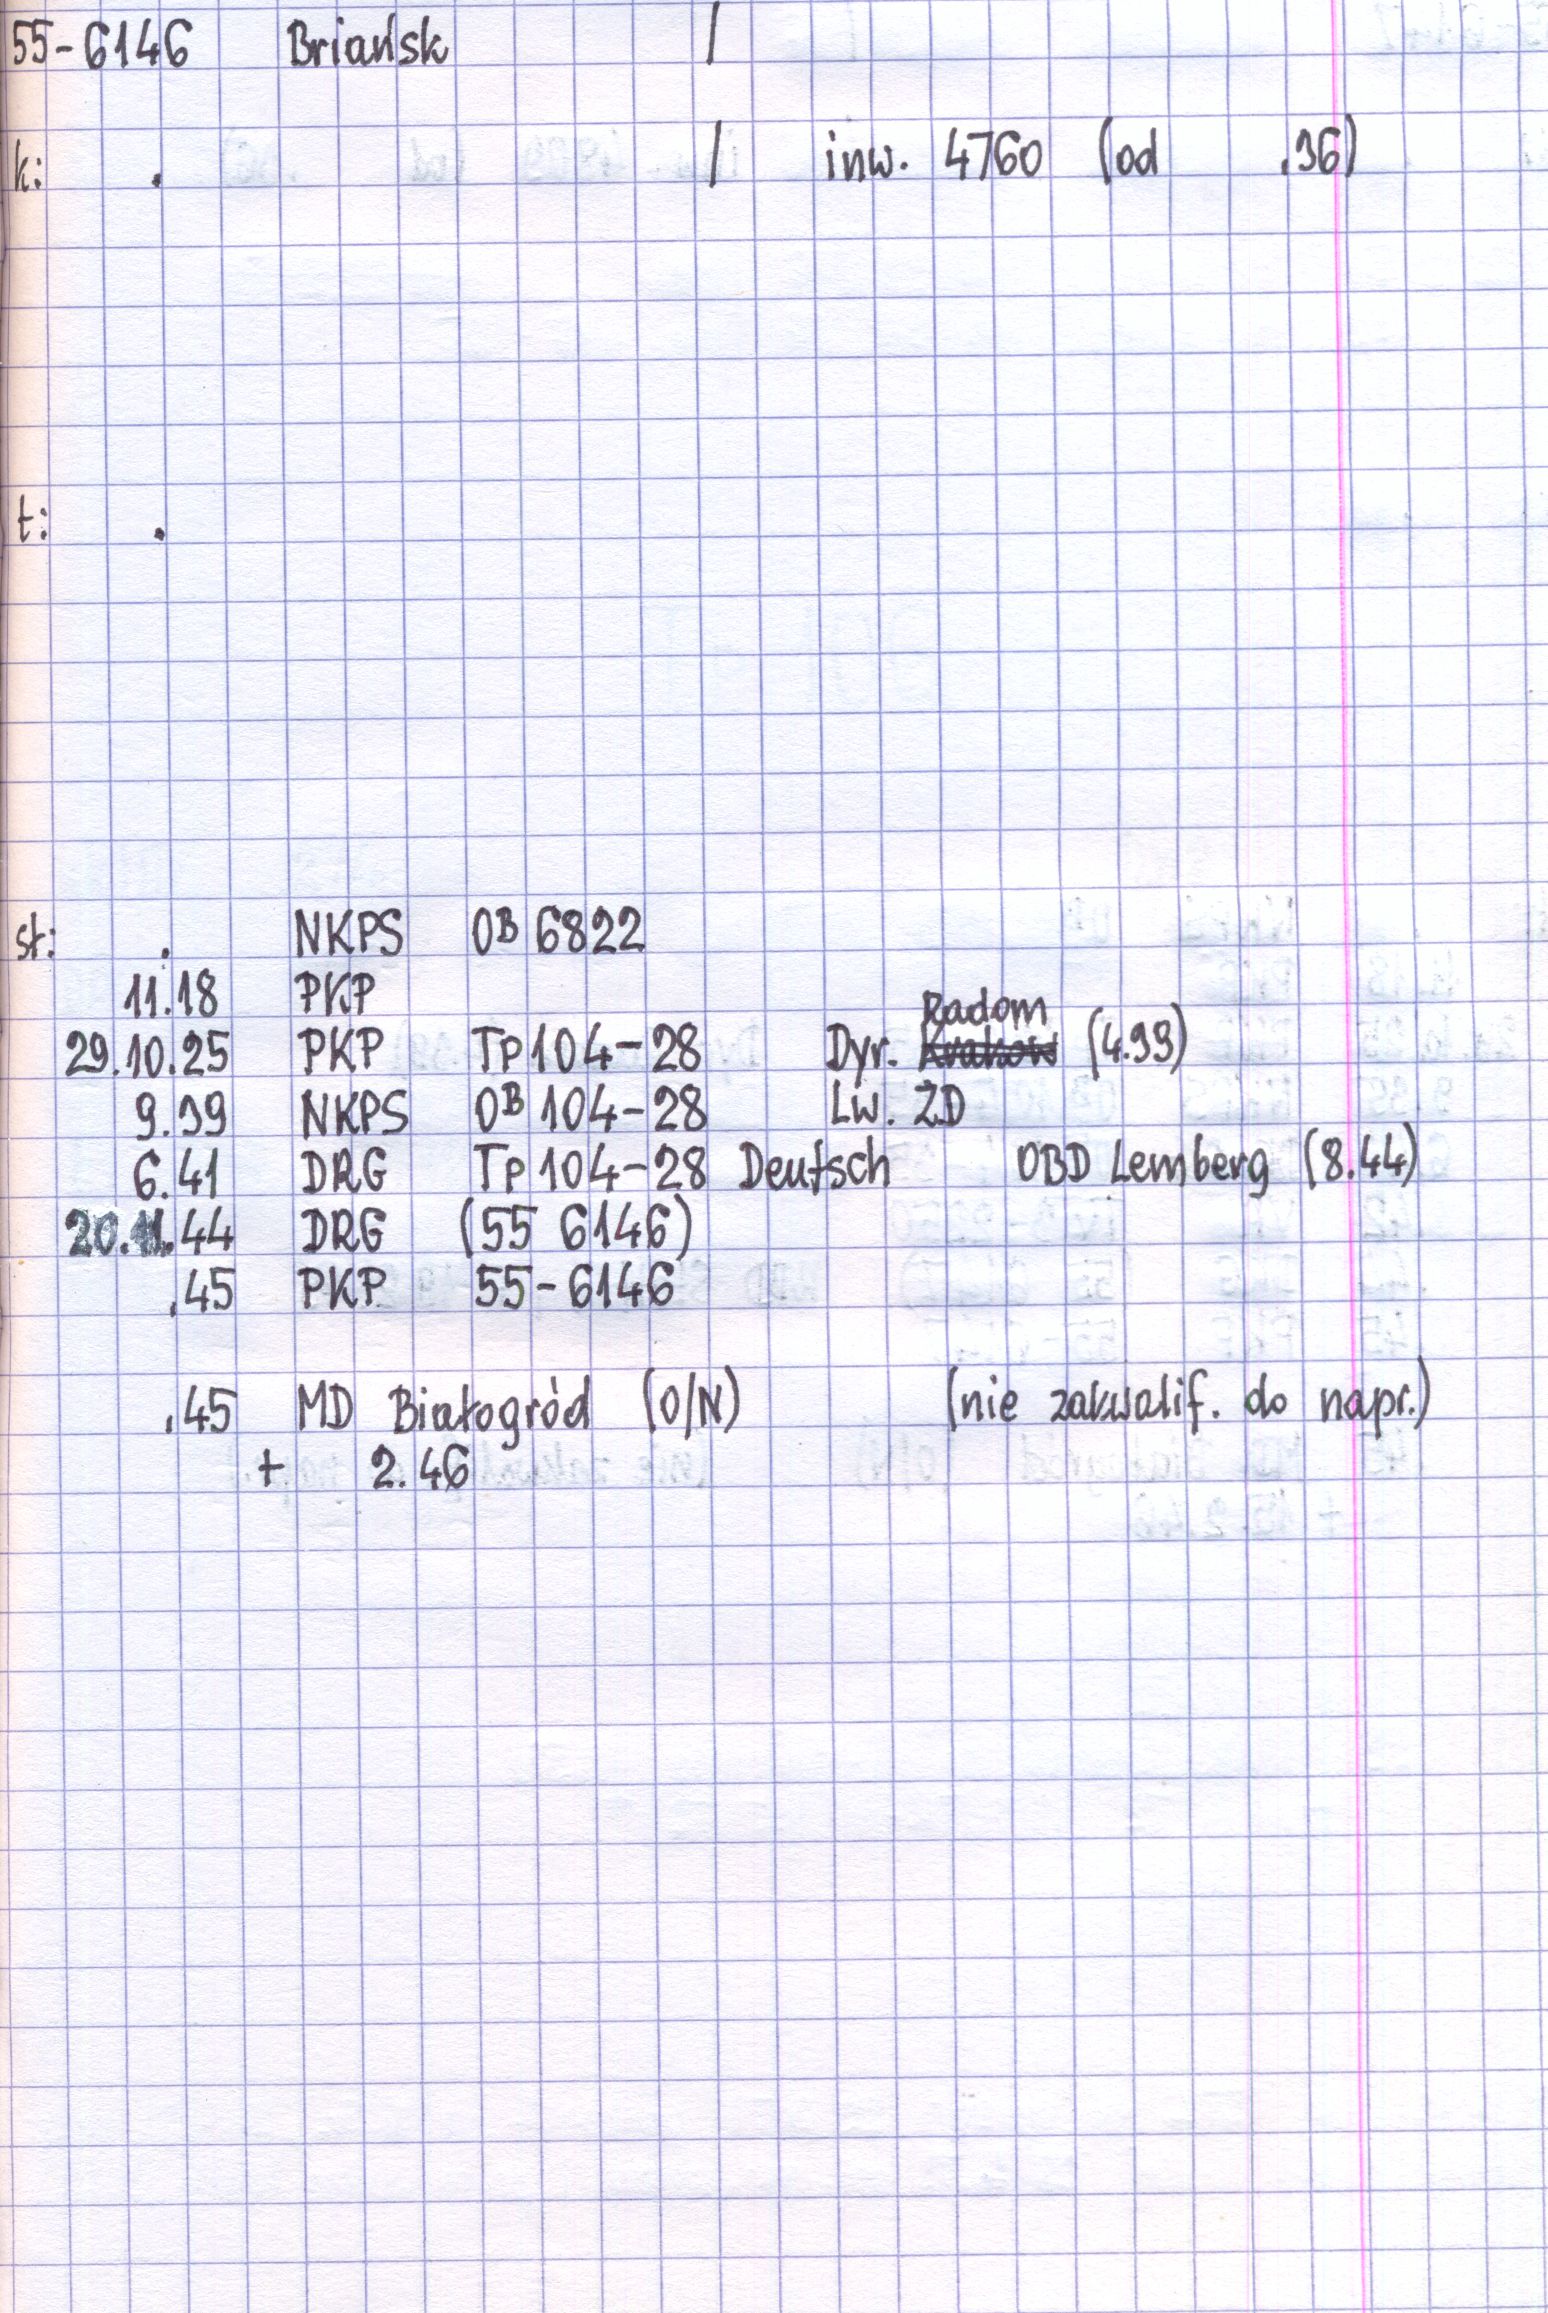 55-6146 Briańsk /
k: . / inw. 4760 (od .36)
t: .
st: . NKPS OB 6822
11.18 PKP
Radom
29.10.25 PKP Tp104-28 Dyr. Krakow (4.39)
9.39 NKPS OB 104-28 Lw. ŻD
6.41 DRG Tp104-28 Deutsch OBD Lemberg (8.44)
20.11.44 DRG (55 6146)
.45 PKP 55-6146
.45 MD Białogród (O/N) (nie zakwalif. do napr.)
+ 2.46